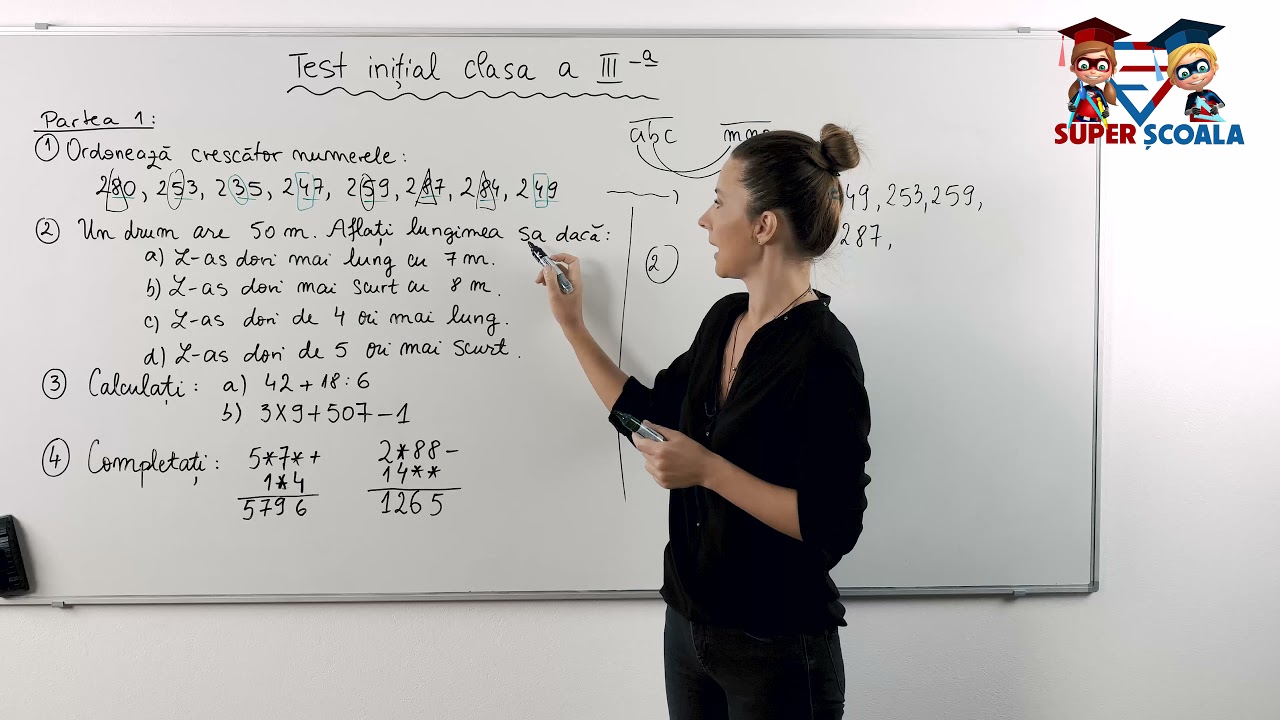 Test inițial clasa a III-a
Partea 1:
1 Ordonează crescător numerele:
280, 253, 235, 247, 259, 287, 284, 249
2 Un drum are 50 m. Aflați lungimea sa dacă:
a) L-as dori mai lung cu 7 m.
b) L-as dori mai scurt cu 8 m.
c) L-as dori de 4 ori mai lung.
d) L-as dori de 5 ori mai scurt.
3 Calculați: a) 42 + 18 : 6
b) 3 X 9 + 507 - 1
4 Completați: 5*7* + 2*88 -
1*4 14**
5796 1265
abc
49, 253, 259,
287,
2
SUPER ȘCOALA